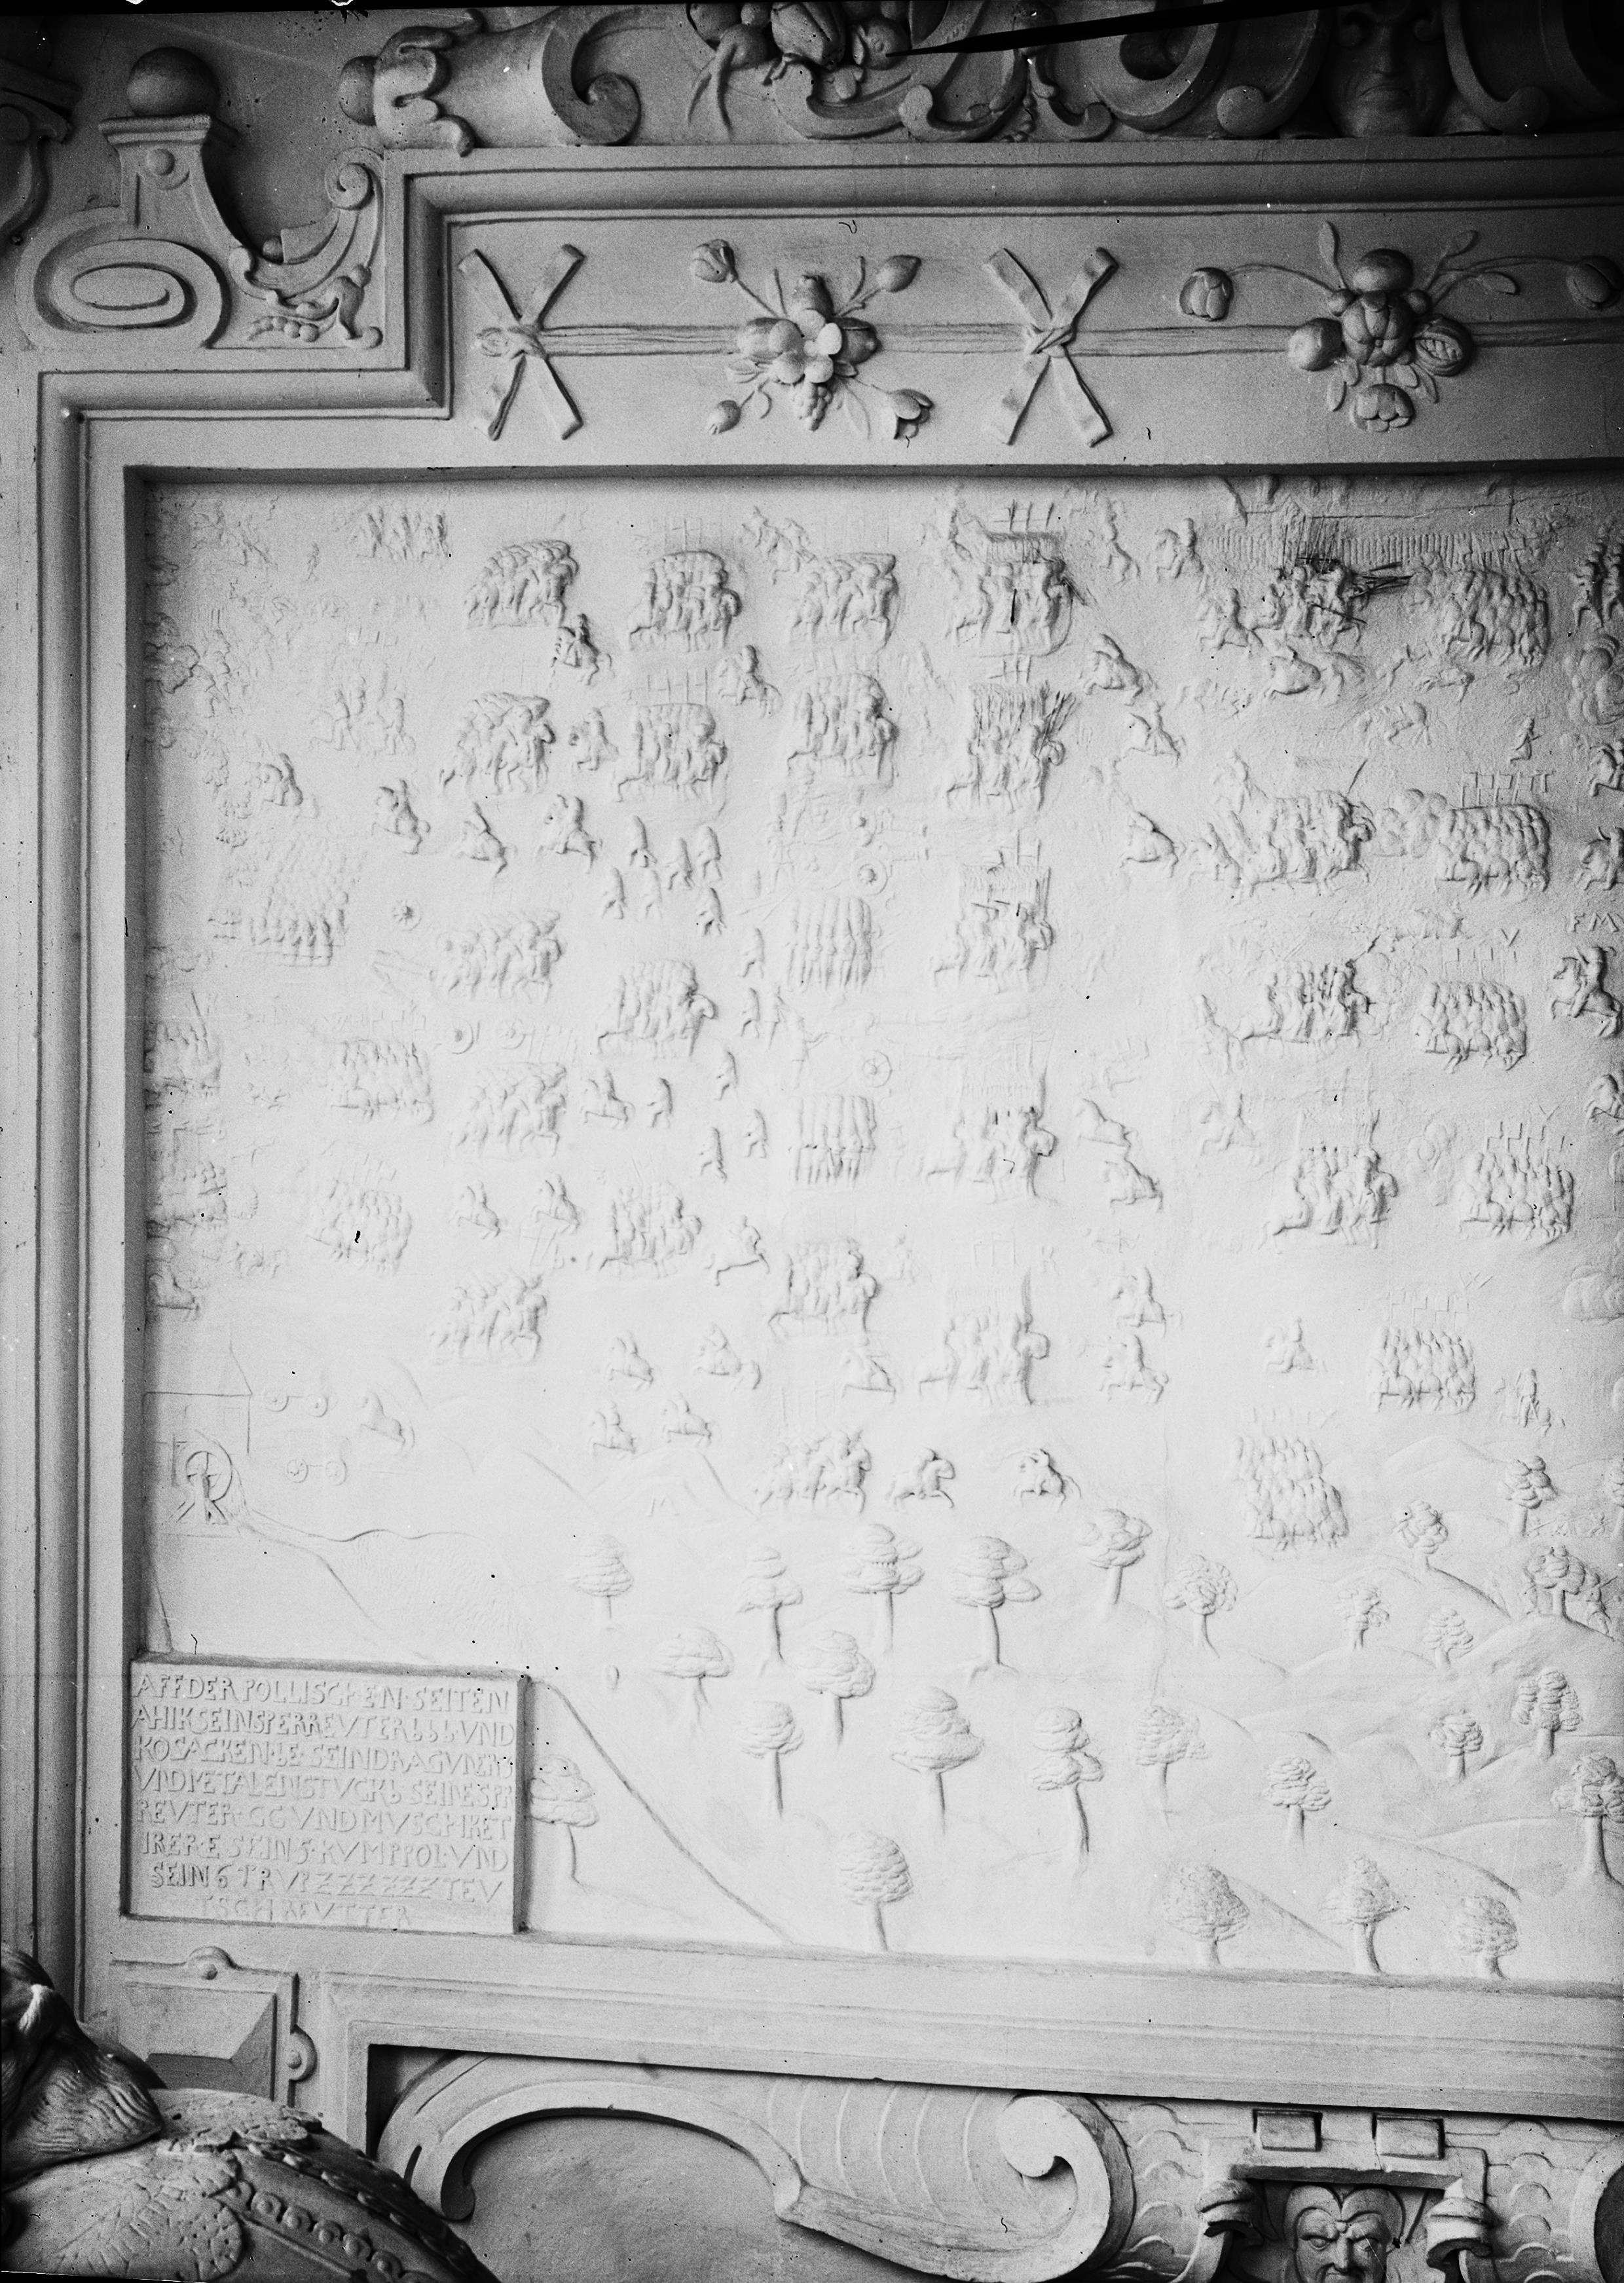 AFF DER POLLISCHEN · SEITEN
A H I K SEIN SPERREVTER b b b · VND
KOSACKEN · bE · SEIN DRAGVNERS
VND METALEN STVCK b SEINE SPR
REVTER · G G VND MVSCHKET
IRER · E SEIN 5 · KVMPPOL · VND
SEIN 6 TRVP Z Z Z Z Z Z TEV
TSCH REVTTER
FM
R